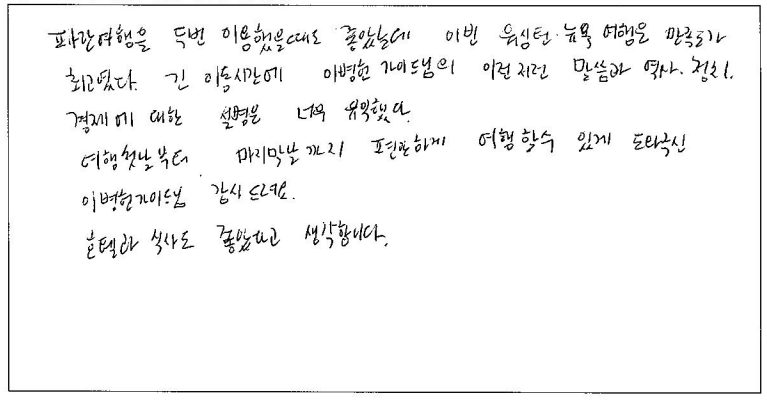 파란여행을 두번 이용했을때도 좋았는데 이번 워싱턴.뉴욕 여행은 만족도가
최고였다. 긴 이동시간에 이병헌 가이드님의 이런저런 말씀과 역사.정치.
경제에 대한 설명은 너무 유익했다.
여행첫날부터 마지막날까지 편안하게 여행할수 있게 도와주신
이병헌가이드님 감사드려요.
호텔과 식사도 좋았다고 생각합니다.